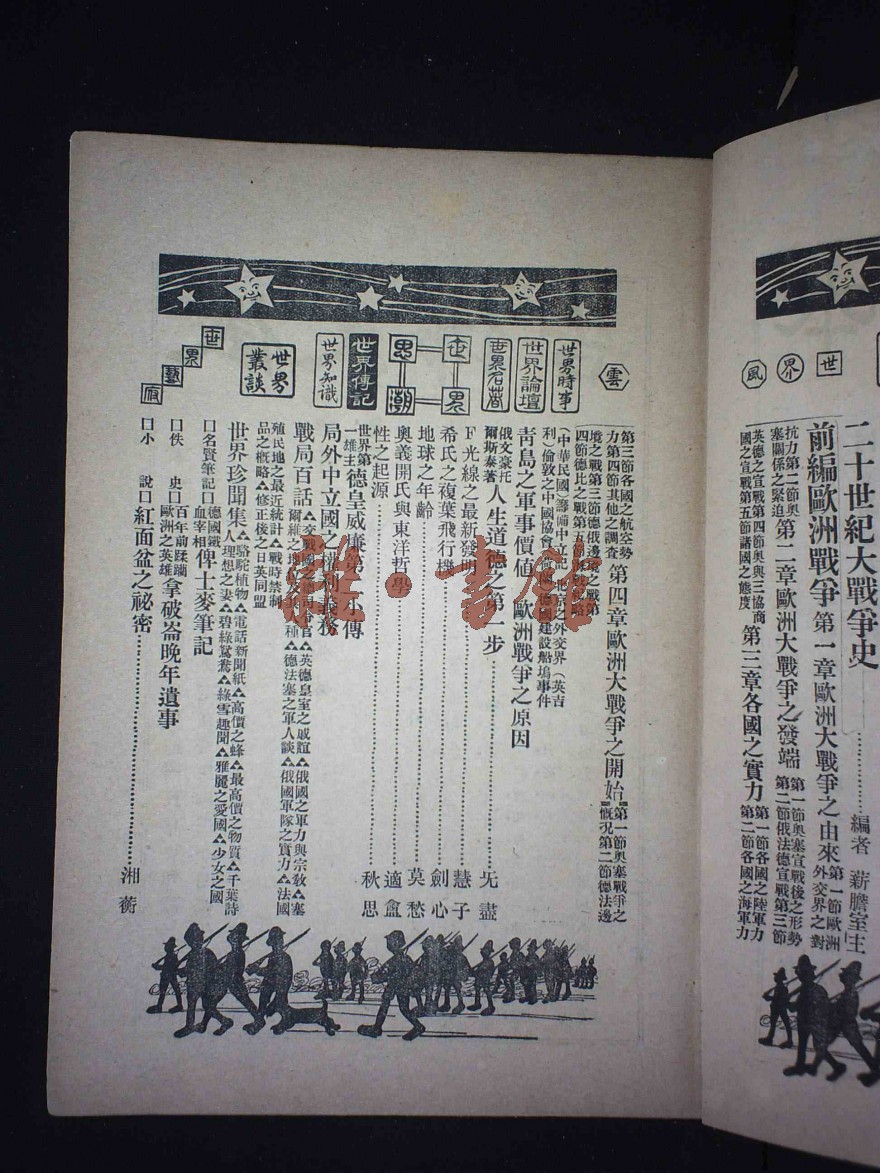 世
界
風
雲
二十世紀大戰爭史
編者 薪膽室主
前編歐洲戰爭 第一章歐洲大戰爭之由來 第一節歐洲
外交界之對
抗力第二節奧
塞關係之緊迫
第二章歐洲大戰爭之發端 第一節奧塞宣戰後之形勢
第二節俄法德宣戰第三節
英德之宣戰第四節奧與三協商
國之宣戰第五節諸國之態度
第三章各國之實力 第一節各國之陸軍力
第二節各國之海軍力
第三節各國之航空勢
力第四節其他之調查
第四章歐洲大戰爭之開始 第一節奧塞戰爭之
概況第二節德法邊
境之戰第三節德俄邊境之戰第
四節德比之戰第五節
世界時事
(中華民國)籌備中立記
之外交界(英吉
利)倫敦之中國協會
德國建設船塢事件
世界論壇
青島之軍事價值
歐洲戰爭之原因
世界名著
俄文豪托
爾斯泰著
人生道德之第一步
无盡
世界思潮
F光線之最新發明
慧子
希氏之複葉飛行機
劍心
地球之年齡
莫愁
奧義開氏與東洋哲學
適盦
性之起源
秋思
世界傳記
世界第
一雄主
德皇威廉第二小傳
世界知識
局外中立國之權利義務
戰局百話
英德皇室之戚誼
俄國之軍力與宗教
塞
德法塞之軍人談
俄國軍隊之實力
法國
殖民地之最近統計
戰時禁制
品之概略
修正後之日英同盟
世界叢談
世界珍聞集
駱駝植物
電話新聞紙
高價之蜂
最高價之物質
千葉詩
人理想之妻
碧綠鴛鴦
綠雪趣聞
雅麗之愛國
少女之國
世界藝府
口名賢筆記口
德國鐵
血宰相
俾士麥筆記
口佚 史口
百年前蹂躪
歐洲之英雄
拿破崙晚年遺事
口小 說口
紅面盆之祕密
湘蘅